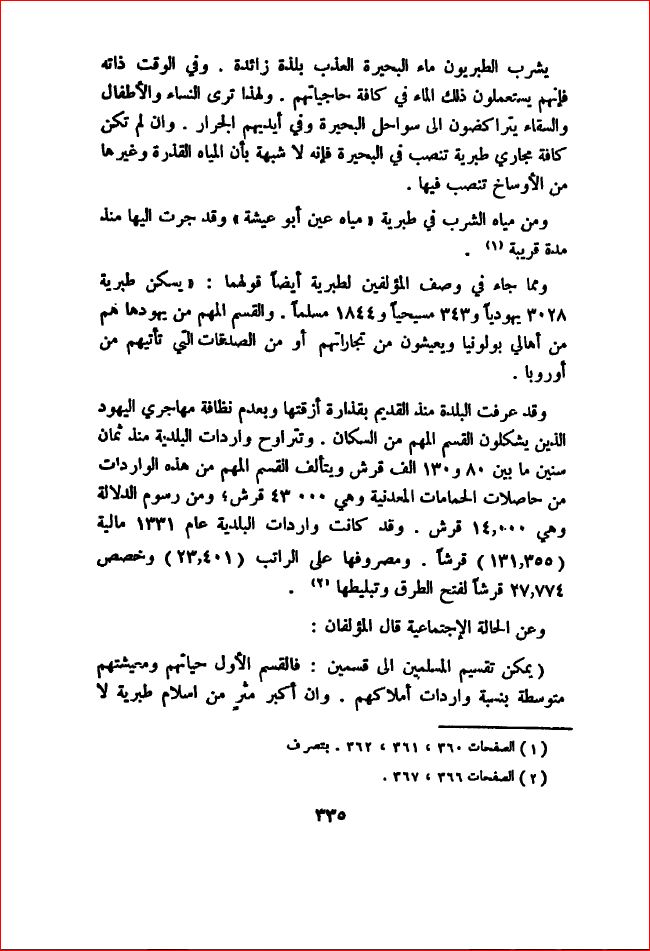 يشرب الطبريون ماء البحيرة العذب بلذة زائدة . وفي الوقت ذاته
فإنهم يستعملون ذلك الماء في كافة حاجياتهم . ولهذا ترى النساء والأطفال
والسقاء يتراكضون الى سواحل البحيرة وفي أيديهم الجرار . وان لم تكن
كافة مجاري طبرية تنصب في البحيرة فإنه لا شبهة بأن المياه القذرة وغيرها
من الأوساخ تنصب فيها .
ومن مياه الشرب في طبرية « مياه عين أبو عيشة » وقد جرت اليها منذ
مدة قريبة (١) .
ومما جاء في وصف المؤلفين لطبرية أيضاً قولهما : « يسكن طبرية
٣٠٢٨ يهودياً و٣٤٣ مسيحياً و١٨٤٤ مسلماً . والقسم المهم من يهودها هم
من أهالي بولونيا ويعيشون من تجاراتهم أو من الصدقات التي تأتيهم من
أوروبا .
وقد عرفت البلدة منذ القديم بقذارة أزقتها وبعدم نظافة مهاجري اليهود
الذين يشكلون القسم المهم من السكان . وتتراوح واردات البلدية منذ ثمان
سنين ما بين ٨٠ و١٣٠ الف قرش ويتألف القسم المهم من هذه الواردات
من حاصلات الحمامات المعدنية وهي ٤٣٠٠٠ قرش؛ ومن رسوم الدلالة
وهي ١٤,٠٠٠ قرش . وقد كانت واردات البلدية عام ١٣٣١ مالية
(١٣١,٣٥٥) قرشاً . ومصروفها على الراتب (٢٣,٤٠١) وخصص
٢٧,٧٧٤ قرشاً لفتح الطرق وتبليطها (٢) .
وعن الحالة الإجتماعية قال المؤلفان :
( يمكن تقسيم المسلمين الى قسمين : فالقسم الأول حياتهم ومعيشتهم
متوسطة بنسبة واردات أملاكهم . وان أكبر مثرٍ من اسلام طبرية لا
(١) الصفحات ٣٦٠ ، ٣٦١ ، ٣٦٢ . بتصرف
(٢) الصفحات ٣٦٦ ، ٣٦٧ .
٣٣٥